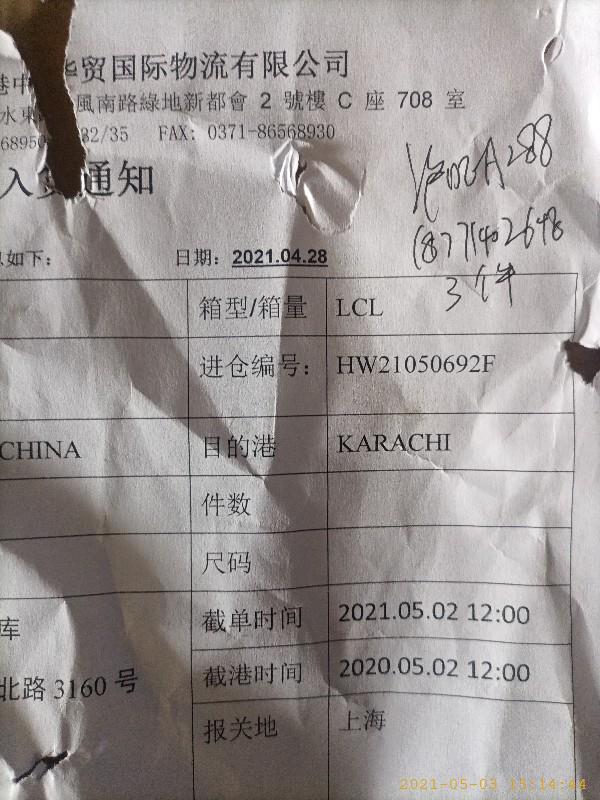 贸国际物流有限公司
風南路綠地新都會 2 號樓 C 座 708 室
32/35 FAX: 0371-86568930
通知
如下:
日期: 2021.04.28
3件
箱型/箱量 LCL
进仓编号: HW21050692F
CHINA 目的港 KARACHI
件数
尺码
库
截单时间 2021.05.02 12:00
北路 3160 号
截港时间 2020.05.02 12:00
报关地 上海
2021-05-03 15:14:44